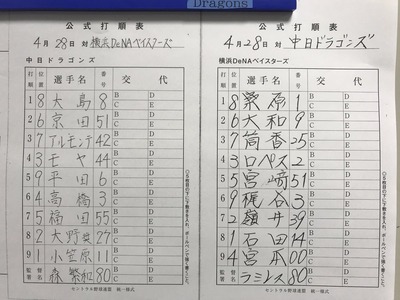 Dragons
公式打順表
4月28日 対 横浜DeNAベイスターズ
中日ドラゴンズ
打順 位置 選手名 交代
1 8 大島 8 B C D E
2 6 京田 51 B C D E
3 7 アルモンテ 42 B C D E
4 3 モヤ 44 B C D E
5 9 平田 6 B C D E
6 4 高橋 3 B C D E
7 5 福田 55 B C D E
8 2 大野奨 27 B C D E
9 1 小笠原 11 B C D E
監督署名 森繁和 80 B C D E
セントラル野球連盟 統一様式
公式打順表
4月28日 対 中日ドラゴンズ
横浜DeNAベイスターズ
打順 位置 選手名 交代
1 8 桑原 1 B C D E
2 6 大和 9 B C D E
3 7 筒香 25 B C D E
4 3 ロペス 2 B C D E
5 5 宮﨑 51 B C D E
6 9 梶谷 3 B C D E
7 2 嶺井 39 B C D E
8 1 石田 14 B C D E
9 4 宮本 00 B C D E
監督署名 ラミレス 80 B C D E
セントラル野球連盟 統一様式